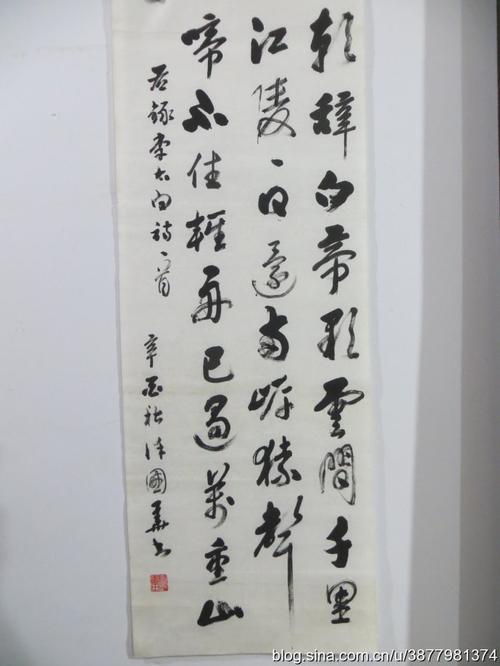 朝辭白帝彩雲間千里
江陵一日還兩岸猿聲
啼不住輕舟已過萬重山
右錄李太白詩一首
辛酉秋國華書
blog.sina.com.cn/u/3877981374